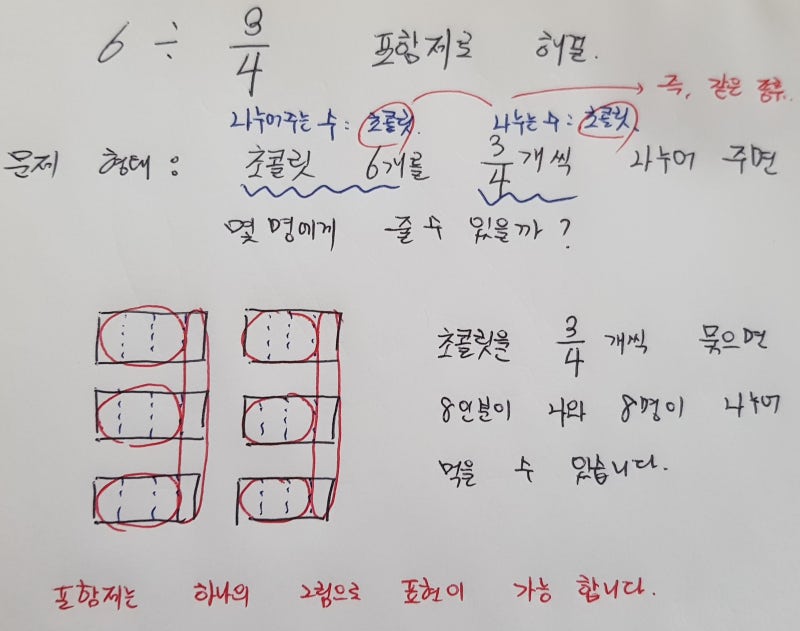 6 ÷ 3/4 포함제로 해결.
즉, 같은 종류.
나누어주는 수 : 초콜릿 나누는 수 : 초콜릿
문제 형태 : 초콜릿 6개를 3/4 개씩 나누어 주면
몇 명에게 줄 수 있을까?
초콜릿을 3/4 개씩 묶으면
8인분이 나와 8명이 나누어
먹을 수 있습니다.
포함제는 하나의 그림으로 표현이 가능 합니다.